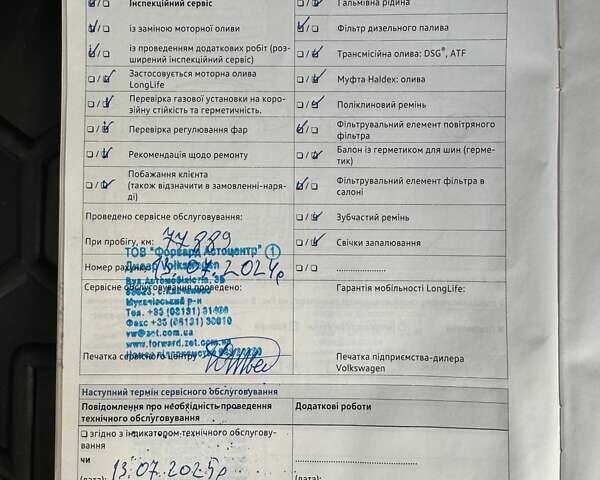 Інспекційний сервіс
із заміною моторної оливи
із проведенням додаткових робіт (роз-
ширений інспекційний сервіс)
Застосовується моторна олива
LongLife
Перевірка газової установки на коро-
зійну стійкість та герметичність.
Перевірка регулювання фар
Рекомендація щодо ремонту
Побажання клієнта
(також відзначити в замовленні-наря-
ді)
Гальмівна рідина
Фільтр дизельного палива
Трансмісійна олива: DSG®, ATF
Муфта Haldex: олива
Поліклиновий ремінь
Фільтрувальний елемент повітряного
фільтра
Балон із герметиком для шин (герме-
тик)
Фільтрувальний елемент фільтра в
салоні
Зубчастий ремінь
Свічки запалювання
....................
Проведено сервісне обслуговування:
При пробігу, км: 77889
ТОВ "Форвард Автоцентр" 1
Дилер Volkswagen
Номер рахунку 13.07.2024р
Вул. Автомобілістів, 3Б
Сервісне обслуговування проведено:
Мукачівський р-н
Тел. +38 (03131) 31400
Факс +38 (03131) 30010
vw@zet.com.ua
www.forward.zet.com.ua
Печатка сервісного центру
Гарантія мобільності LongLife:
Печатка підприємства-дилера
Volkswagen
Наступний термін сервісного обслуговування
Повідомлення про необхідність проведення
технічного обслуговування
Додаткові роботи
згідно з індикатором технічного обслугову-
вання
чи
13.07.2025р
(дата):